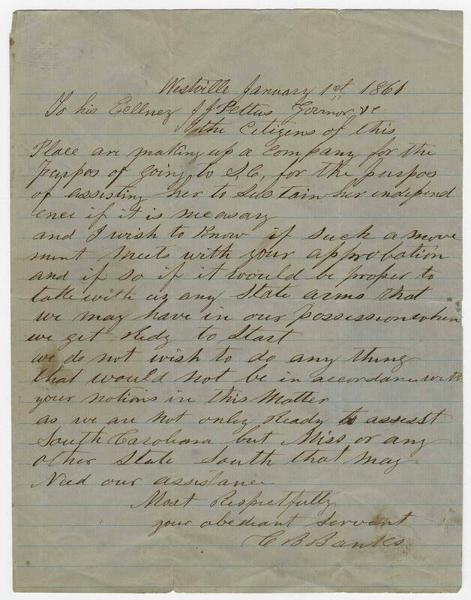 Westville January 1st 1861
To his Exllncy J J Pettus Govnor &c
the Citizens of this
Place are making up a Company for the
purppos of going to S.C, for the purpos
of assisting her to Sustain her independ
ence if it is necesary
and I wish to know if such a move
ment meets with your approbation
and if so if it would be proper to
take with us any State arms that
we may have in our possession when
we get redy to Start
we do not wish to do any thing
that would not be in accordance with
your notions in this Matter
as we are not only Ready to assest
South Carolinia but Miss, or any
other State South that may
Need our assistance
Most Respectfully
your obediant Servant
C B Banks